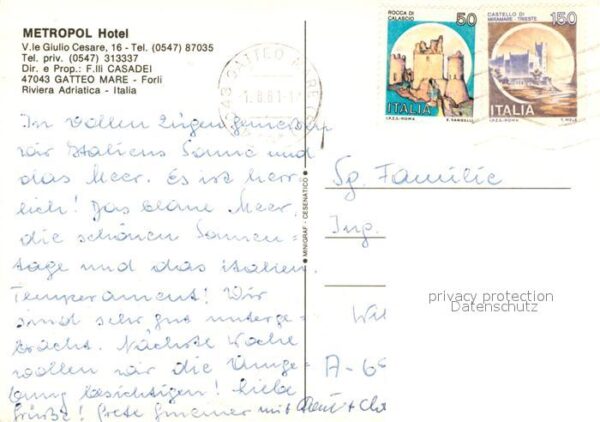 METROPOL Hotel
V.le Giulio Cesare, 16 - Tel. (0547) 87035
Tel. priv. (0547) 313337
Dir. e Prop.: F.lli CASADEI
47043 GATTEO MARE - Forlì
Riviera Adriatica - Italia
ROCCA DI CALASCIO
50
ITALIA
I.P.Z.S.-ROMA
E. VANGELLI
CASTELLO DI MIRAMARE - TRIESTE
150
ITALIA
I.P.Z.S.-ROMA
GATTEO MARE
In vollen Zügen geniessen
wir Italiens Sonne und
das Meer. Es ist herr
lich! Das blaue Meer
die schönen Sonnen-
tage und das italien.
Temperament! Wir
sind sehr gut unterge-
bracht. Nächste Woche
wollen wir die Umge-
bung besichtigen! Liebe
Grüße! Grete mit
MINIGRAF - CESENATICO
Sg. Familie
Ing.
A-6
privacy protection
Datenschutz